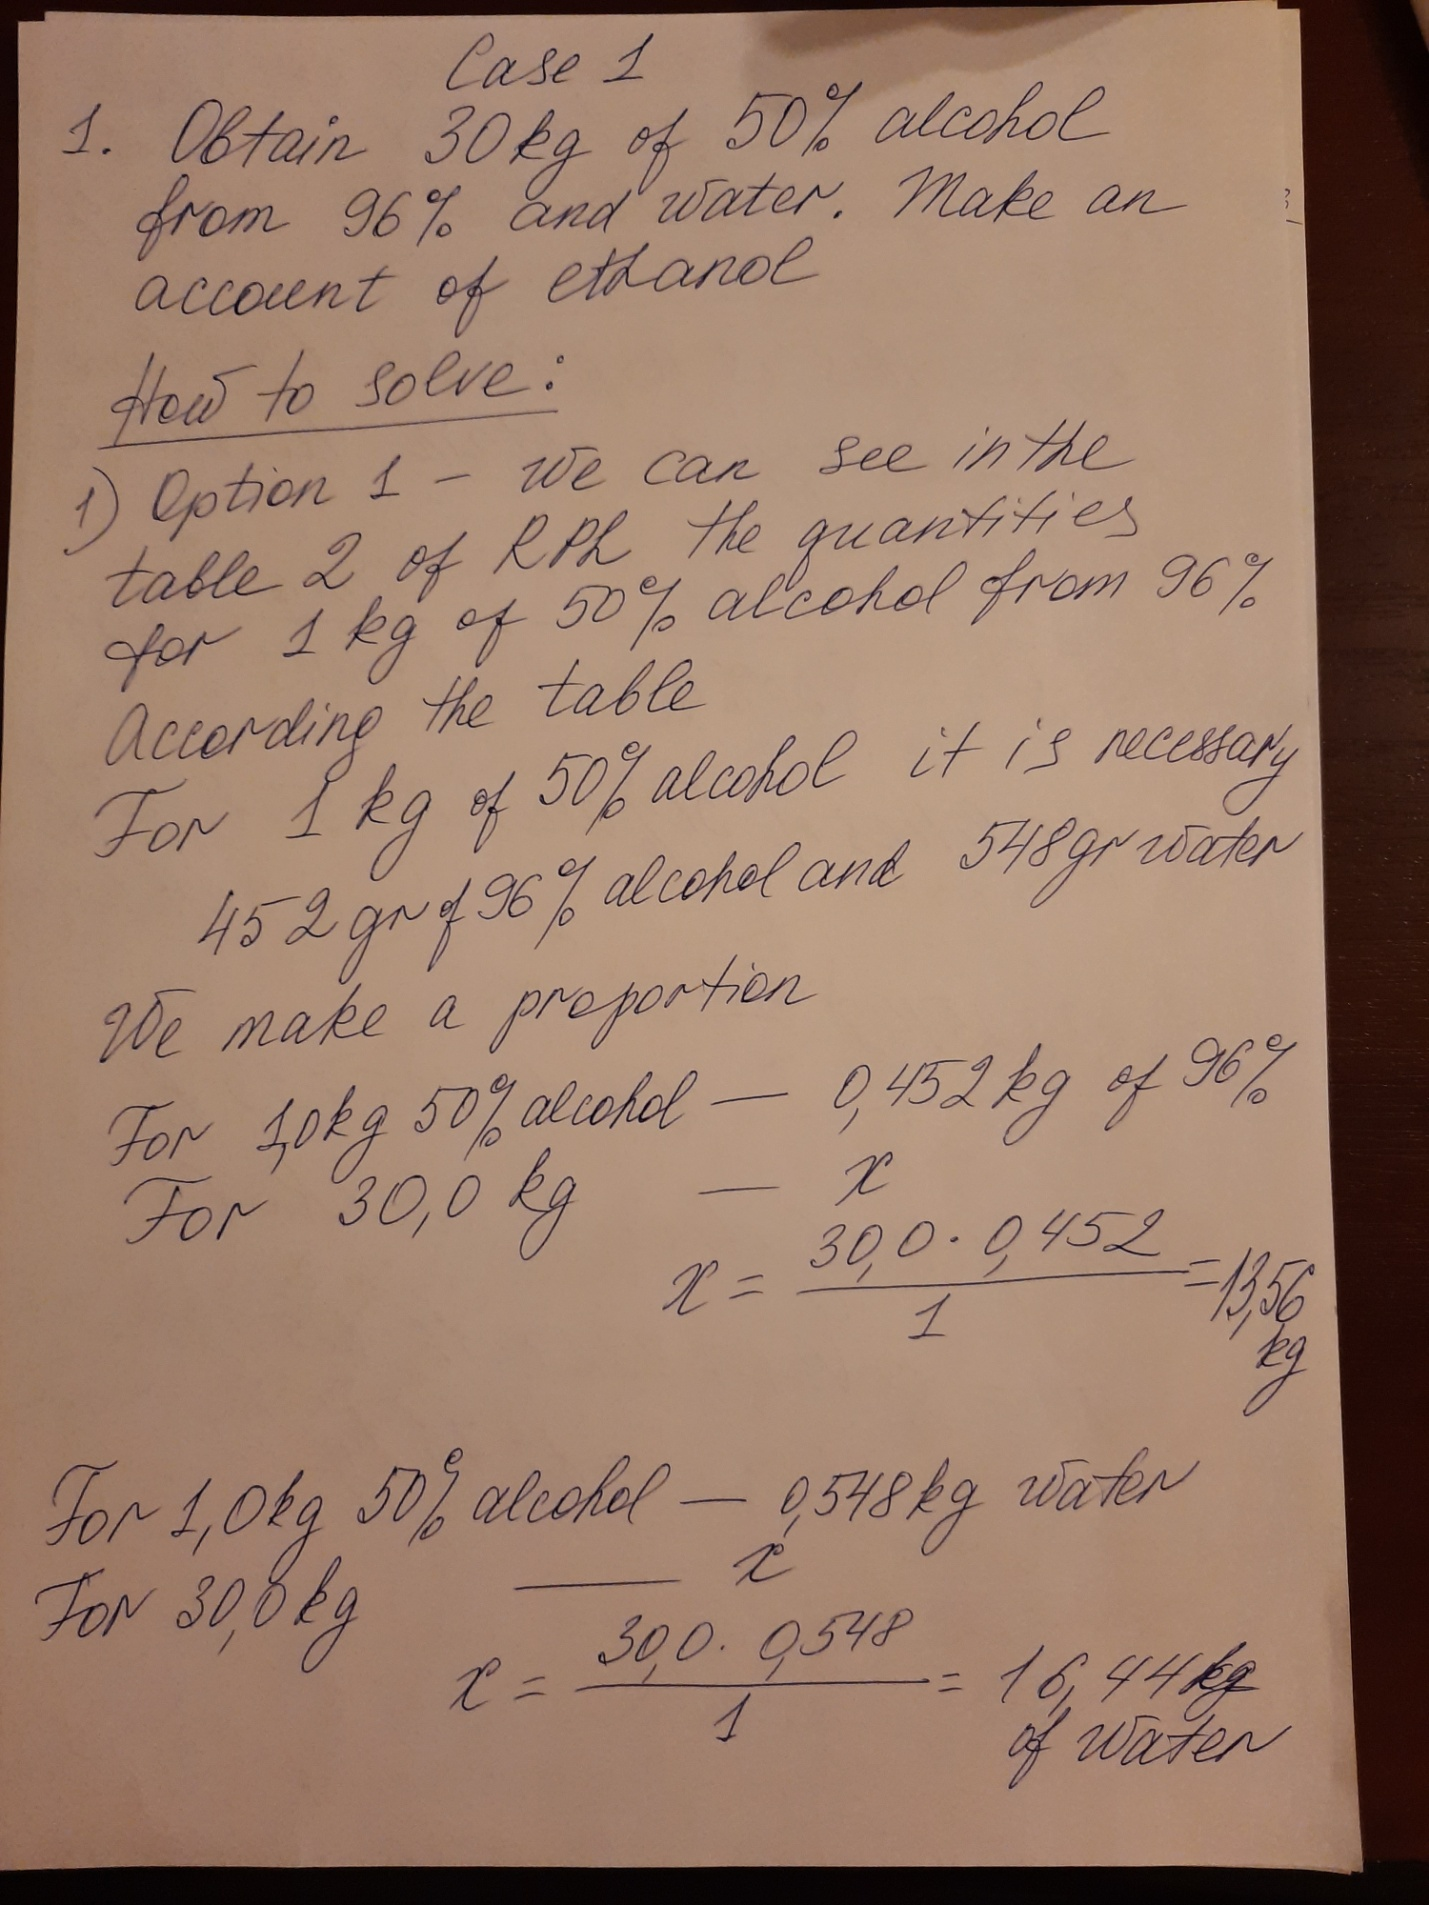 Case 1
1. Obtain 30 kg of 50% alcohol
from 96% and water. Make an
account of ethanol
How to solve:
1) Option 1 – we can see in the
table 2 of RPh the quantities
for 1 kg of 50% alcohol from 96%
According the table
For 1 kg of 50% alcohol it is necessary
452 gr of 96% alcohol and 548 gr water
We make a proportion
For 1,0 kg 50% alcohol — 0,452 kg of 96%
For 30,0 kg — x
x = 30,0 · 0,452 / 1 = 13,56 kg
For 1,0 kg 50% alcohol — 0,548 kg water
For 30,0 kg — x
x = 30,0 · 0,548 / 1 = 16,44 kg
of water